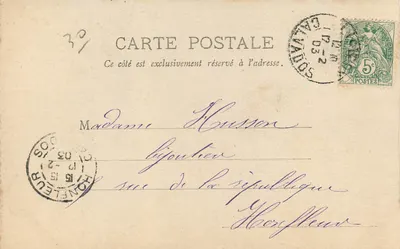 30
CARTE POSTALE
Ce côté est exclusivement réservé à l'adresse.
CALVADOS
17 -2
03
5c
POSTES
Madame Husson
bijoutier
rue de la république
Honfleur
HONFLEUR
15 15
17 -2
03